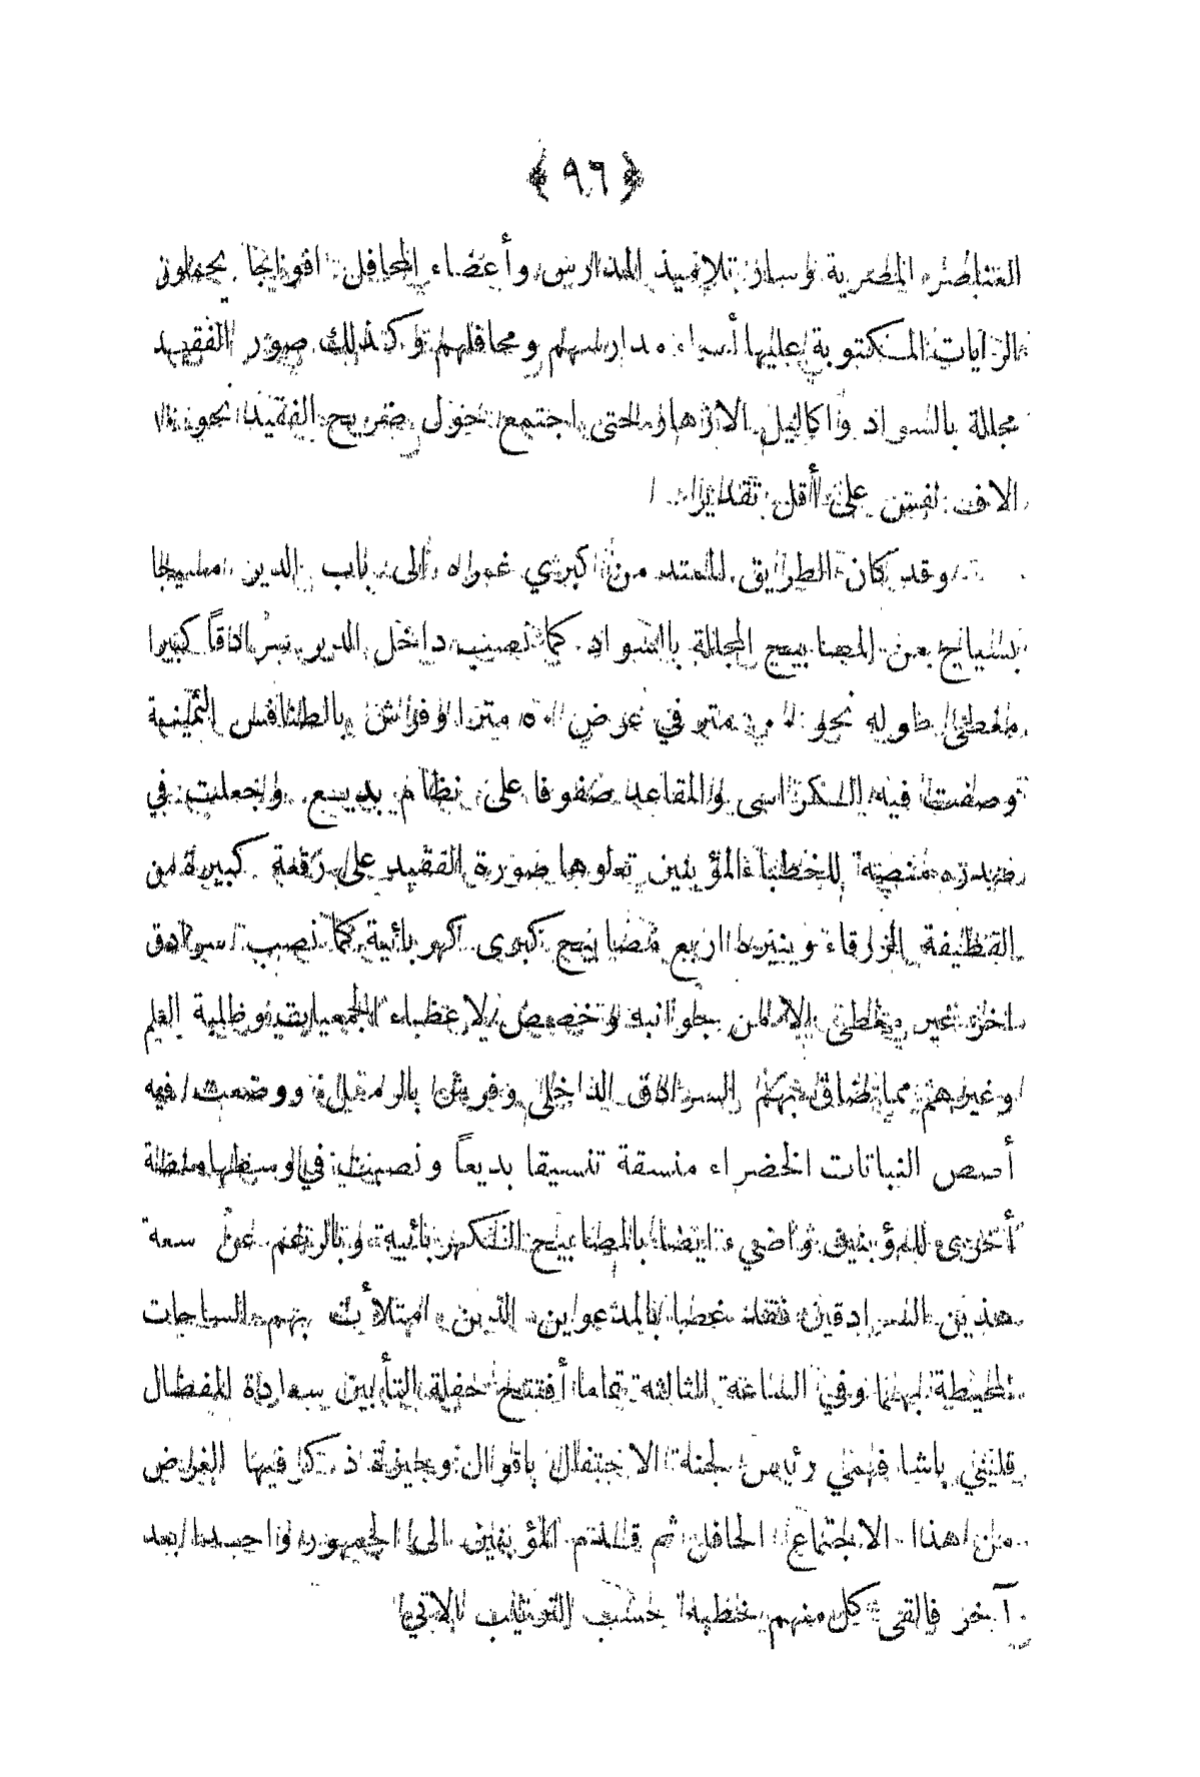 ﴿ ٩٦ ﴾
العناصر المصرية وسار تلاميذ المدارس وأعضاء المحافل افواجا يحملون
الرايات المكتوبة عليها أسماء مدارسهم ومحافلهم وكذلك صور الفقيد
مجللة بالسواد واكاليل الازهار حتى اجتمع حول ضريح الفقيد نحو
الاف نفس على أقل تقدير
وقد كان الطريق الممتد من كبري غمره الى باب الدير مسيجا
بسياج من المصابيح المجللة بالسواد كما نصب داخل الدير سرادقاً كبيرا
مغطى طوله نحو متر في عرض ٥٠ مترا وفرش بالطنافس الثمينة
وصفت فيه الكراسى والمقاعد صفوفا على نظام بديع وجعلت في
صدره منصة للخطباء المؤبنين تعلوها صورة الفقيد على رقعة كبيرة من
القطيفة الزرقاء وينيره اربع مصابيح كبرى كهربائية كما نصب سرادق
اخر غير مغطى الا من جوانبه وخصص لاعضاء الجمعيات وطلبة العلم
وغيرهم مما ضاق بهم السرادق الداخلى وفرش بالرمل ووضعت فيه
أصص النباتات الخضراء منسقة تنسيقا بديعاً ونصبت في وسطها منصة
أخرى للمؤبنين واضيء ايضا بالمصابيح الكهربائية وبالرغم عن سعة
هذين السرادقين فقد غصا بالمدعوين الذين امتلأت بهم الساحات
المحيطة بهما وفي الساعة الثالثة تماما أفتتح حفلة التأبين سعادة المفضال
قليني باشا فهمي رئيس لجنة الاحتفال باقوال وجيزة ذكر فيها الغرض
من هذا الاجتماع الحافل ثم قدم المؤبنين الى الجمهور واحدا بعد
آخر فالقى كل منهم خطبه حسب الترتيب الاتي